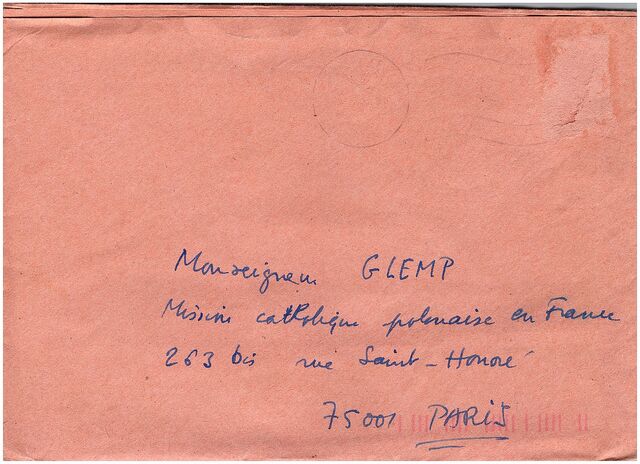 Monseigneur GLEMP
Mission catholique polonaise en France
263 bis rue Saint-Honoré
75001 PARIS